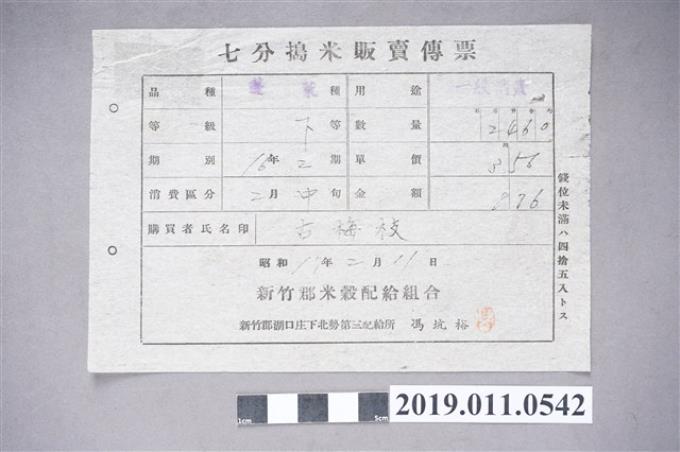 七分搗米販賣傳票
品種 蓬萊種 用途 一般消費
等級 下等 數量 2460
期別 16年二期 單價 356
消費區分 二月中旬 金額 876
購買者氏名印 古梅枝
昭和17年二月11日
新竹郡米穀配給組合
新竹郡湖口庄下北勢第三配給所 馮坑裕
錢位未滿ハ四捨五入トス
1cm
5cm
2019.011.0542